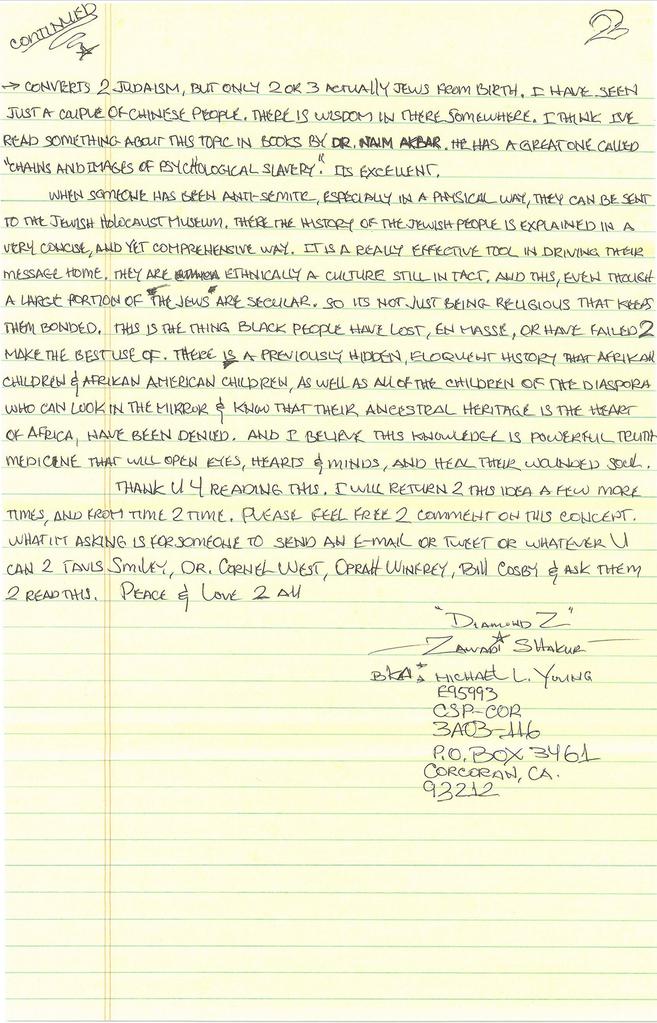 CONTINUED
2
→ CONVERTS 2 JUDAISM, BUT ONLY 2 OR 3 ACTUALLY JEWS FROM BIRTH. I HAVE SEEN
JUST A COUPLE OF CHINESE PEOPLE. THERE IS WISDOM IN THERE SOMEWHERE. I THINK I'VE
READ SOMETHING ABOUT THIS TOPIC IN BOOKS BY DR. NAIM AKBAR. HE HAS A GREAT ONE CALLED
"CHAINS AND IMAGES OF PSYCHOLOGICAL SLAVERY". ITS EXCELLENT.
WHEN SOMEONE HAS BEEN ANTI-SEMITIC, ESPECIALLY IN A PHYSICAL WAY, THEY CAN BE SENT
TO THE JEWISH HOLOCAUST MUSEUM. THERE THE HISTORY OF THE JEWISH PEOPLE IS EXPLAINED IN A
VERY CONCISE, AND YET COMPREHENSIVE WAY. IT IS A REALLY EFFECTIVE TOOL IN DRIVING THEIR
MESSAGE HOME. THEY ARE ETHNICALLY A CULTURE STILL IN TACT. AND THIS, EVEN THOUGH
A LARGE PORTION OF "THE JEWS" ARE SECULAR. SO ITS NOT JUST BEING RELIGIOUS THAT KEEPS
THEM BONDED. THIS IS THE THING BLACK PEOPLE HAVE LOST, EN MASSE, OR HAVE FAILED 2
MAKE THE BEST USE OF. THERE IS A PREVIOUSLY HIDDEN, ELOQUENT HISTORY THAT AFRIKAN
CHILDREN & AFRIKAN AMERICAN CHILDREN, AS WELL AS ALL OF THE CHILDREN OF THE DIASPORA
WHO CAN LOOK IN THE MIRROR & KNOW THAT THEIR ANCESTRAL HERITAGE IS THE HEART
OF AFRICA, HAVE BEEN DENIED. AND I BELIEVE THIS KNOWLEDGE IS POWERFUL TRUTH
MEDICINE THAT WILL OPEN EYES, HEARTS & MINDS, AND HEAL THEIR WOUNDED SOUL.
THANK U 4 READING THIS. I WILL RETURN 2 THIS IDEA A FEW MORE
TIMES, AND FROM TIME 2 TIME. PLEASE FEEL FREE 2 COMMENT ON THIS CONCEPT.
WHAT I'M ASKING IS FOR SOMEONE TO SEND AN E-MAIL OR TWEET OR WHATEVER U
CAN 2 TAVIS SMILEY, DR. CORNEL WEST, OPRAH WINFREY, BILL COSBY & ASK THEM
2 READ THIS. PEACE & LOVE 2 All
"DIAMOND Z"
ZAWADI SHAKUR
BKA: MICHAEL L. YOUNG
E95993
CSP-COR
3A03-116
P.O. BOX 3461
CORCORAN, CA.
93212